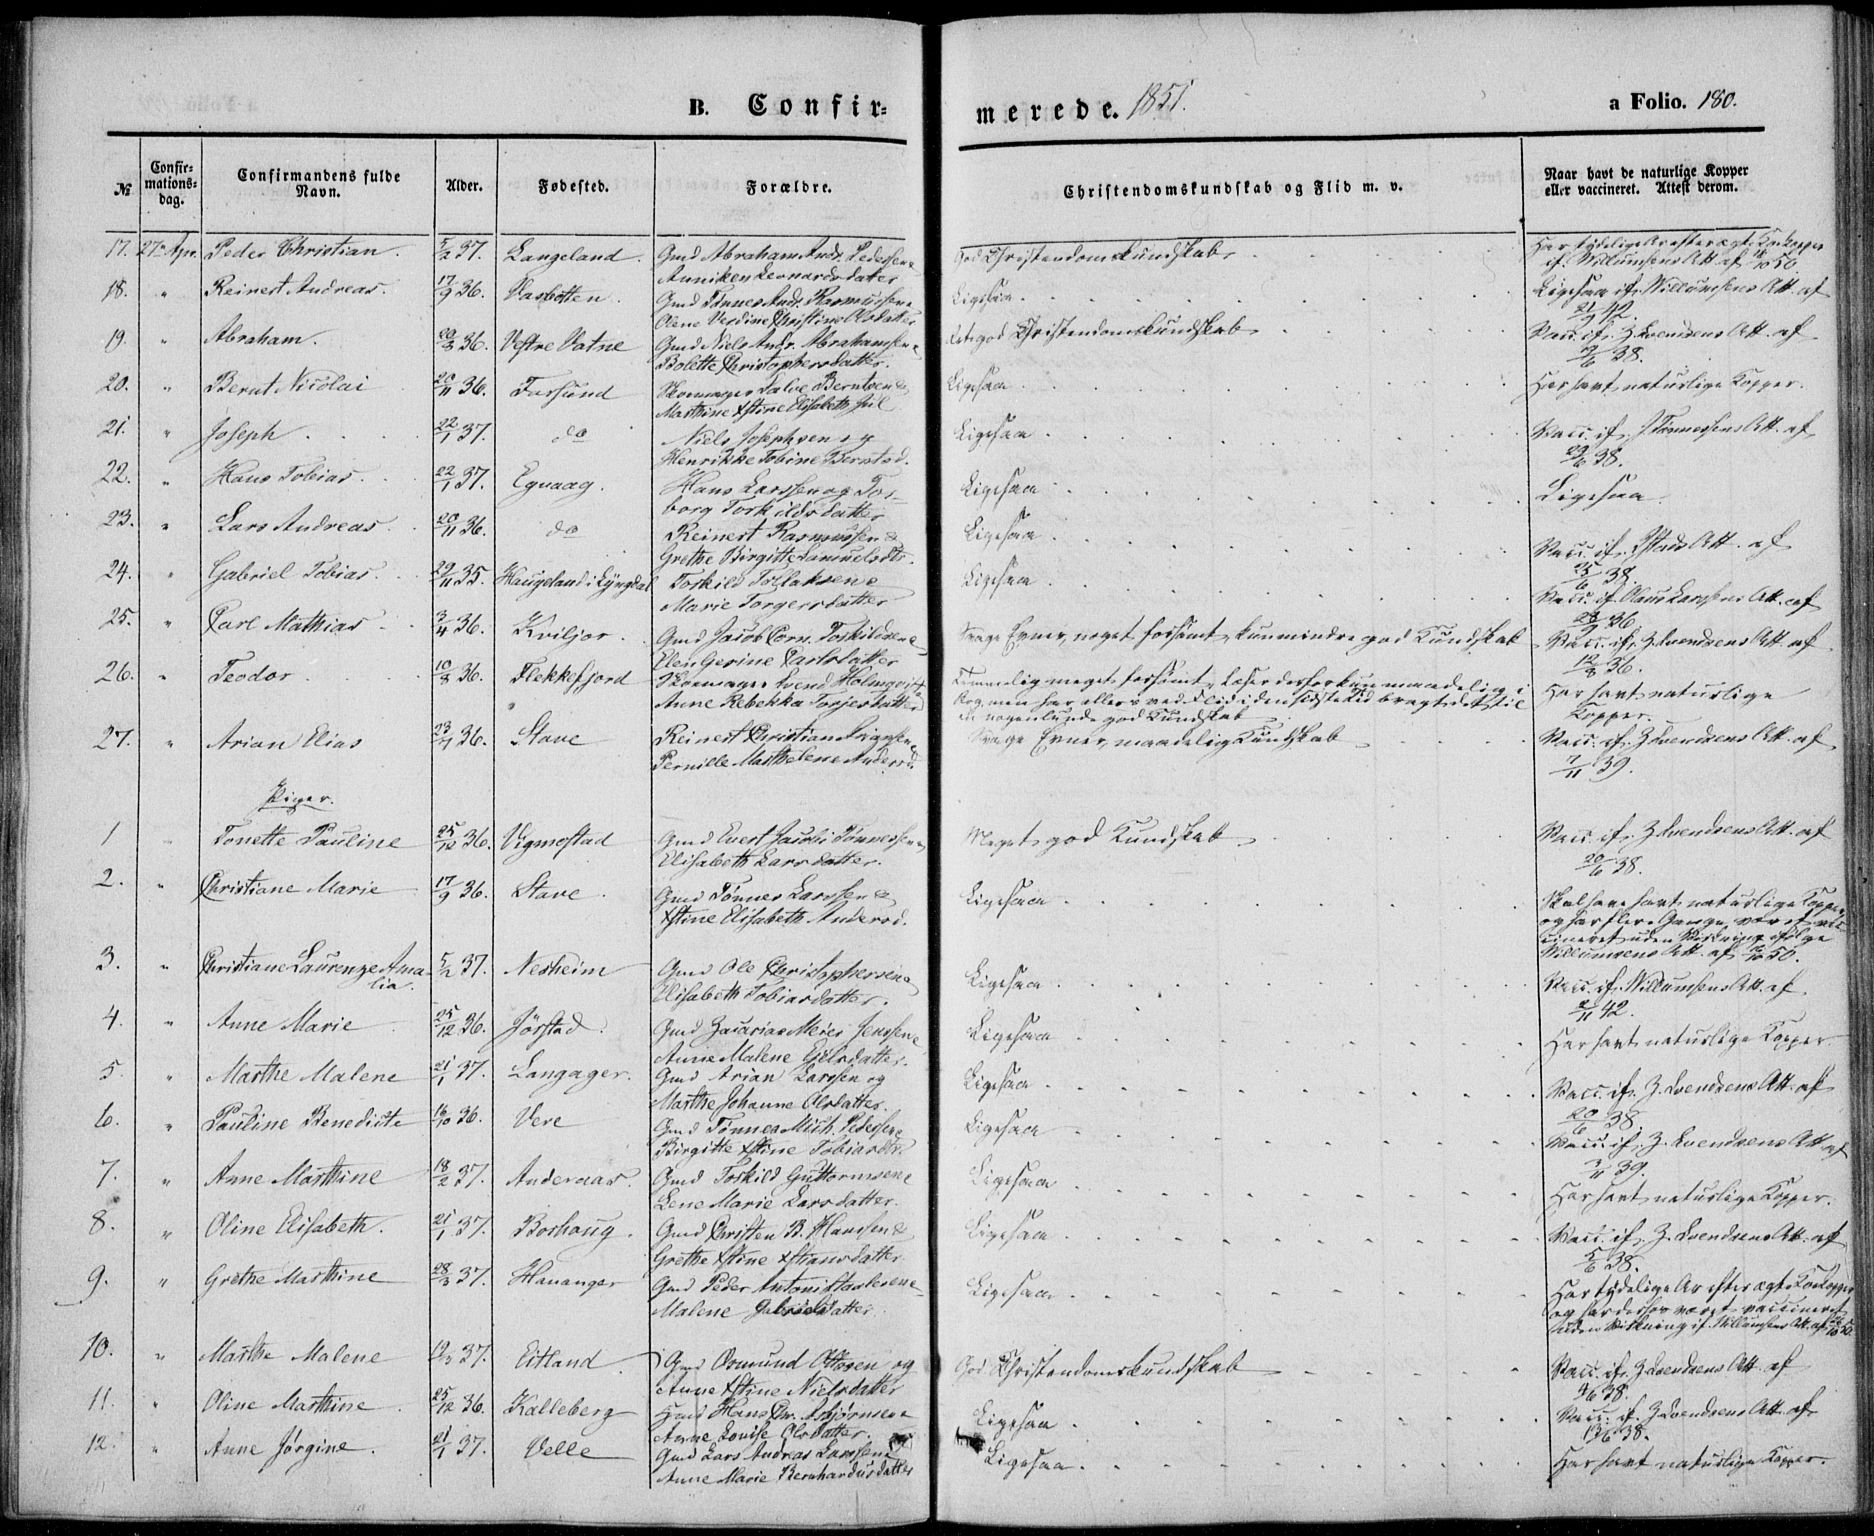 B. Confir-
merede. 1851.
a Folio. 180.
№
Confir-
mations-
dag.
Confirmandens fulde
Navn.
Alder.
Fødested.
Forældre.
Christendomskundskab og Flid m. v.
Naar havt de naturlige Kopper
eller vaccineret. Attest derom.
17. 27de Apr. Peder Christian. 5/2 37. Langeland. Gmd Abraham Andr. Pedersen &
Anniken Leonardsdatter
God Christendomskundskab
Har tydelige Ar efter ægte Kokopper
if. Willumsens Att. af 50
18. " Reinert Andreas. 17/9 36. Vasbotten. Gmd Tønnes Andr. Rasmussen &
Olene Verdine Christine Olsdatter
Ligesaa
Ligesaa if. Willumsens Att. af
42.
19. " Abraham. 20/3 36. Vestre Vatne Gmd Niels Andr. Abrahamsen &
Bolette Christophersdatter.
Ret god Christendomskundskab
Vacc. if. Z. Svendsens Att. af
38.
20. " Bernt Nicolai 20/11 36. Farsund Skomager Salve Berntsen &
Marthine Xstine Elisabeth Juul
Ligesaa
Har havt naturlige Kopper.
21. " Joseph. 22/1 37. do Niels Josephsen og
Henrikke Tobine Berntsd.
Ligesaa
Vacc. if. J Tønnessens Att. af
29/6 38.
22. " Hans Tobias. 22/1 37. Egvaag. Hans Larssen og Tor-
borg Torkildsdatter
Ligesaa
Ligesaa
23. " Lars Andreas. 20/11 36. do Reinert Rasmussen &
Grethe Birgitte Samuelsdtr.
Ligesaa
Vacc. if. Att. af
38.
24. " Gabriel Tobias. 29/11 35. Haugeland i Lyngdal Torkild Tollaksen &
Marie Torgersdatter
Ligesaa
Vacc. if. Olaus Larssens Att. af
36.
25. " Carl Mathias 3/4 36. Kviljor. Gmd Jacob Corn. Torkildsen &
Elen Gerine Carlsdatter
Svage Evner, noget forsømt, kun mindre god Kundskab
Vacc. if. Z. Svendsens Att. af
12/8 36.
26. " Teodor 10/3 36. Flekkefjord Skomager Svend Holmqvist &
Anne Rebekka Torjesdatter
Temmelig meget forsømt, læser derfor kun maadelig i
Bog, men har ellers ved Flid i den sidste Tid bragt det til
en nogenlunde god Kundskab
Har havt naturlige
Kopper.
27. " Arian Elias 36. Stave Reinert Christian &
Pernille Marthe Lene Andersd.
Svage Evner, maadelig Kundskab
Vacc. if. Z Svendsens Att. af
7/11 39.
Piger.
1 " Tonette Pauline 25/12 36. Vigmostad Gmd Evert Jacobi Tønnessen &
Elisabeth Larsdatter.
Meget god Kundskab
Vacc. if. Z. Svendsens Att. af
20/6 38.
2. " Christiane Marie 17/9 36. Stave. Gmd Tønnes Larssen &
Xstine Elisabeth Andersd.
Ligesaa
Skal have havt naturlige Kopper,
og har flere Gange været vac-
cineret uden Virkning ifølge
Willumsens Att. af 50.
3. " Christiane Laurenze Ama-
lia. 5/2 37. Nesheim Gmd Ole Christophersen &
Elisabeth Tobiasdatter.
Ligesaa
Vacc. if. Willumsens Att. af
42.
4. " Anne Marie 25/12 36. Jørstad. Gmd Zacarias Meier Jenssen &
Anne Malene Ejelsdatter.
Ligesaa
Har havt naturlige Kopper.
5. " Marthe Malene 21/1 37. Langager. Gmd Arian Larssen og
Marthe Johanne Olsdatter.
Ligesaa
Vacc. if. Z. Svendsens Att. af
20/6 38.
6. " Pauline Benedicte 16/10 36. Vere Gmd Tønnes Mich. Pedersen &
Birgitte Xstine Tobiasdtr.
Ligesaa
Vacc. if. Z. Svendsens Att. af
7/11 39.
7. " Anne Marthine 18/2 37. Anderaas. Gmd Torkild Guttormsen &
Lene Marie Larsdatter.
Ligesaa
Har havt naturlige Kopper.
8. " Oline Elisabeth. 21/1 37. Borhaug. Gmd Christen B. Hanssen &
Grethe Xstine Xstiansdatter
Ligesaa
Vacc. if. Z. Svendsens Att. af
5/6 38.
9. " Grethe Marthine 28/3 37. Hananger Gmd Peder Antoni Starlesen &
Malene Gabrielsdatter.
Ligesaa
Har tydelige Ar efter ægte Kokopper
og har derfor været vaccineret
uden Virkning if. Willumsens Att. af 50.
10. " Marthe Malene 37. Eitland Gmd Osmund Ottosen og
Anne Xstine Nielsdatter
God Christendomskundskab
Vacc. if. Z Svendsens Att. af
4/6 38.
11. " Oline Marthine. 25/12 36. Kalleberg Hmd Hans Chr. Asbjørnsen &
Anne Lovise Olsdatter.
Ligesaa
Vacc. if. Z Svendsens Att. af
38.
12. " Anne Jørgine. 21/1 37. Velle Gmd Lars Andreas Larssen &
Anne Marie Bernhardusdatter
Ligesaa
Har havt naturlige Kopper.